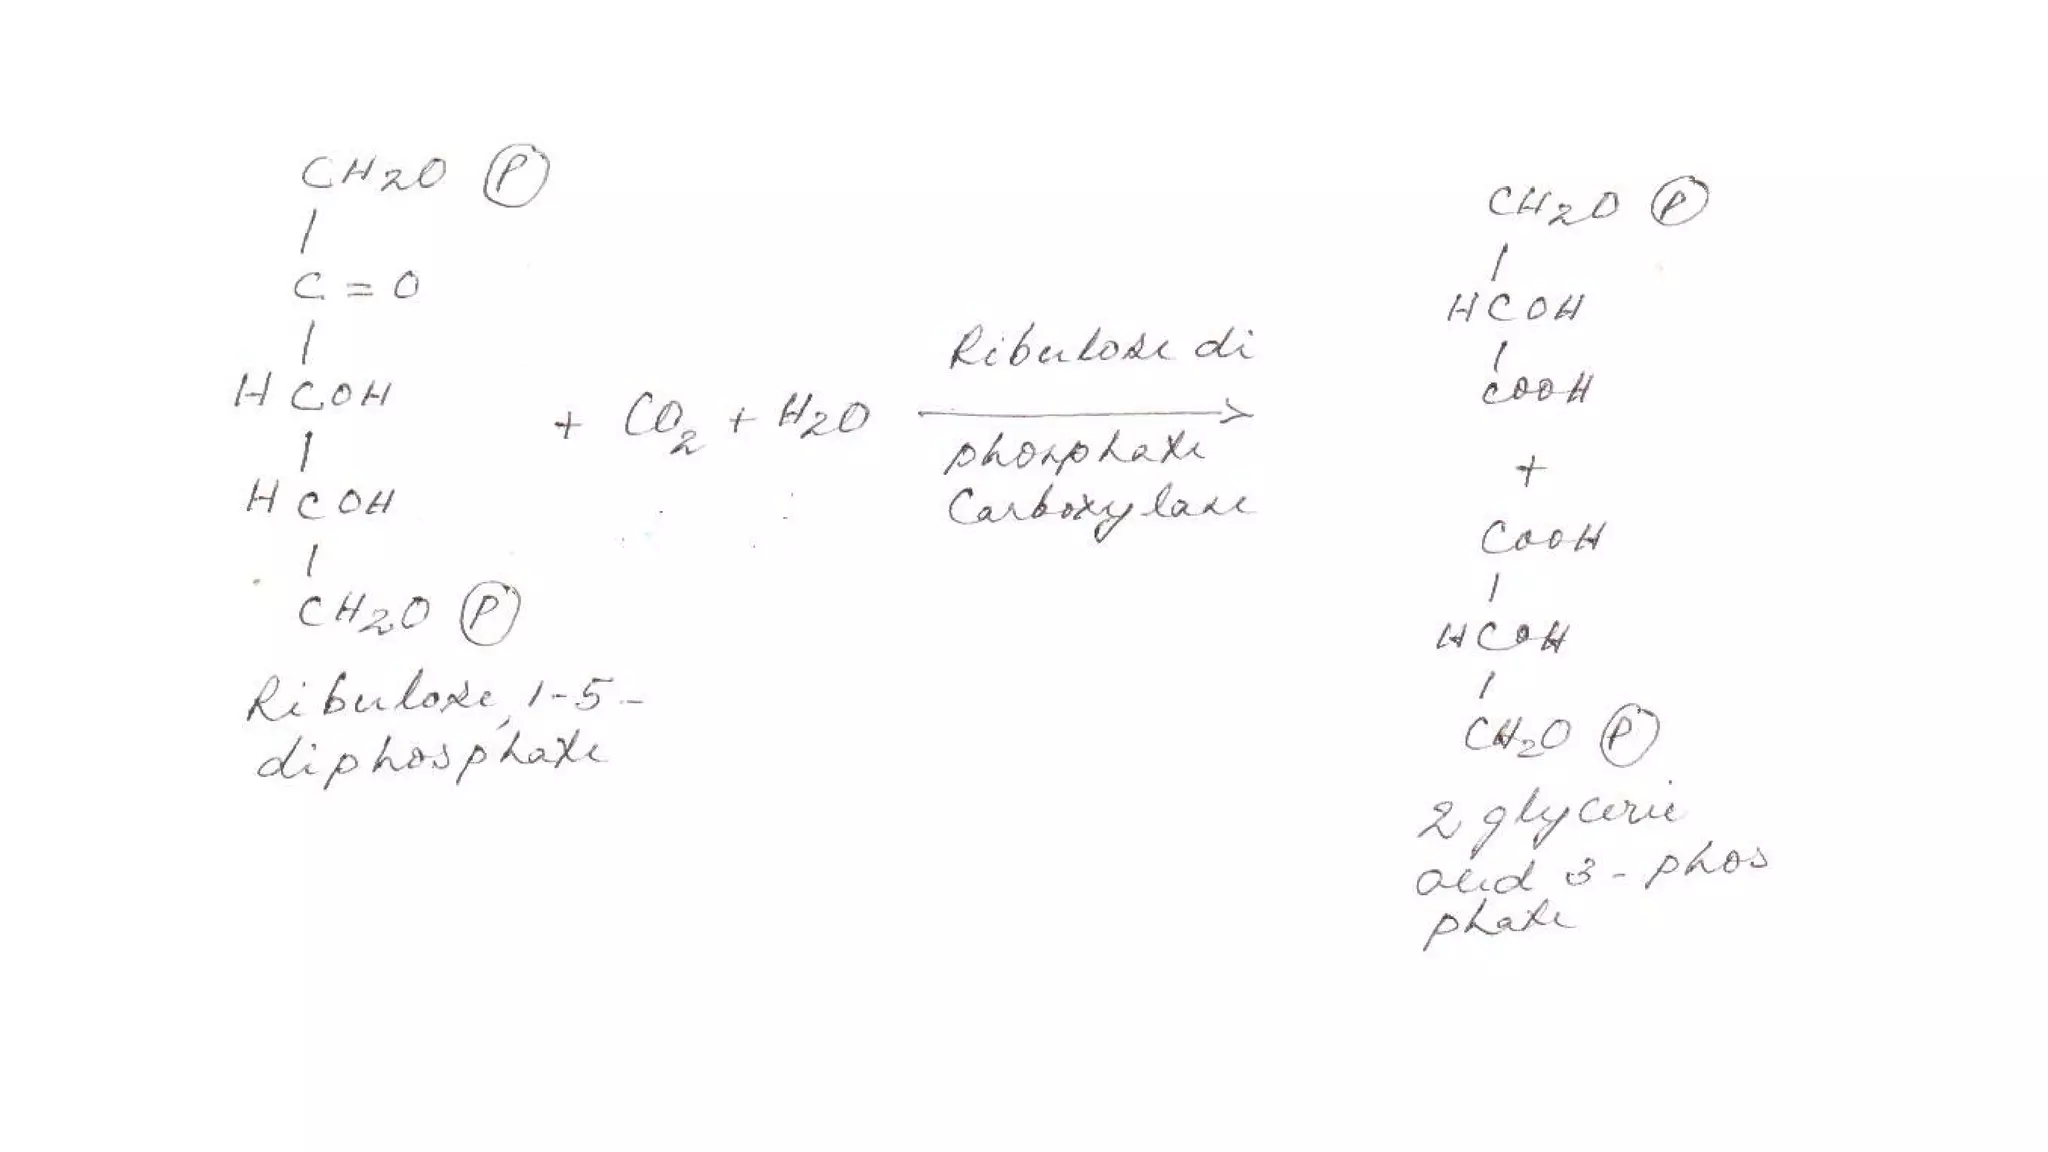 CH2O Ⓟ
|
C = O
|
HCOH
|
HCOH
|
CH2O Ⓟ
Ribulose, 1-5-
diphosphate
+ CO2 + H2O
Ribulose di
phosphate
Carboxylase
CH2O Ⓟ
|
HCOH
|
COOH
+
COOH
|
HCOH
|
CH2O Ⓟ
2 glyceric
acid 3-phos
phate